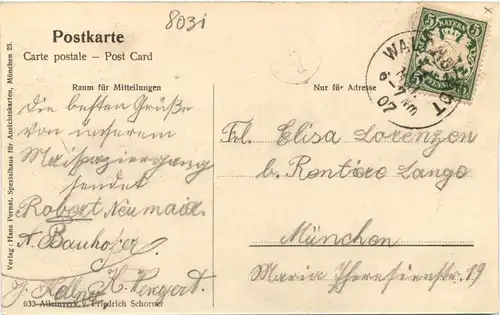 8031
Postkarte
Carte postale – Post Card
Raum für Mitteilungen
Nur für Adresse
BAYERN
5 5
5 5
PFENNIG
6-7 Nm
07
Die besten Grüße
von unserem
Maispaziergang
sendet
Robert Neumair.
A. Bauhofer
H. Wengert.
Frl. Elisa Lorenzen
b. Rentiere Lango
München
Maria Theresienstr. 19
Verlag: Hans Pernat, Spezialhaus für Ansichtskarten, München 23.
633 Alleinverk. v. Friedrich Schorner